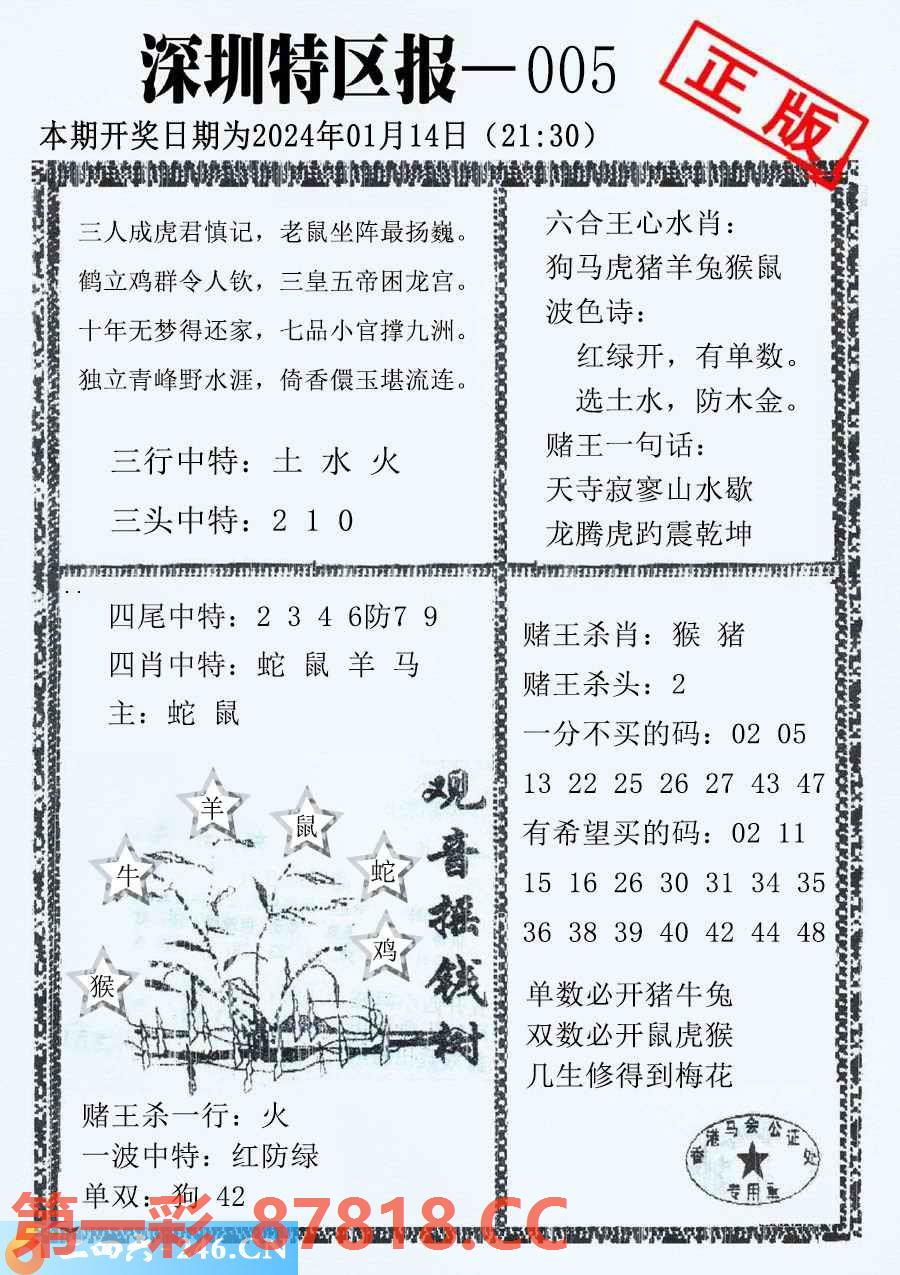 深圳特区报—005
正版
本期开奖日期为2024年01月14日（21:30）
三人成虎君慎记，老鼠坐阵最扬巍。
鹤立鸡群令人钦，三皇五帝困龙宫。
十年无梦得还家，七品小官撑九洲。
独立青峰野水涯，倚香偎玉堪流连。
三行中特：土 水 火
三头中特：2 1 0
六合王心水肖：
狗马虎猪羊兔猴鼠
波色诗：
红绿开，有单数。
选土水，防木金。
赌王一句话：
天寺寂寥山水歇
龙腾虎趵震乾坤
四尾中特：2 3 4 6防7 9
四肖中特：蛇 鼠 羊 马
主：蛇 鼠
羊
鼠
牛
蛇
鸡
猴
观音摇钱树
赌王杀一行：火
一波中特：红防绿
单双：狗 42
赌王杀肖：猴 猪
赌王杀头：2
一分不买的码：02 05
13 22 25 26 27 43 47
有希望买的码：02 11
15 16 26 30 31 34 35
36 38 39 40 42 44 48
单数必开猪牛兔
双数必开鼠虎猴
几生修得到梅花
香港马会公证处
专用章
第一彩 87818.CC
246.CN